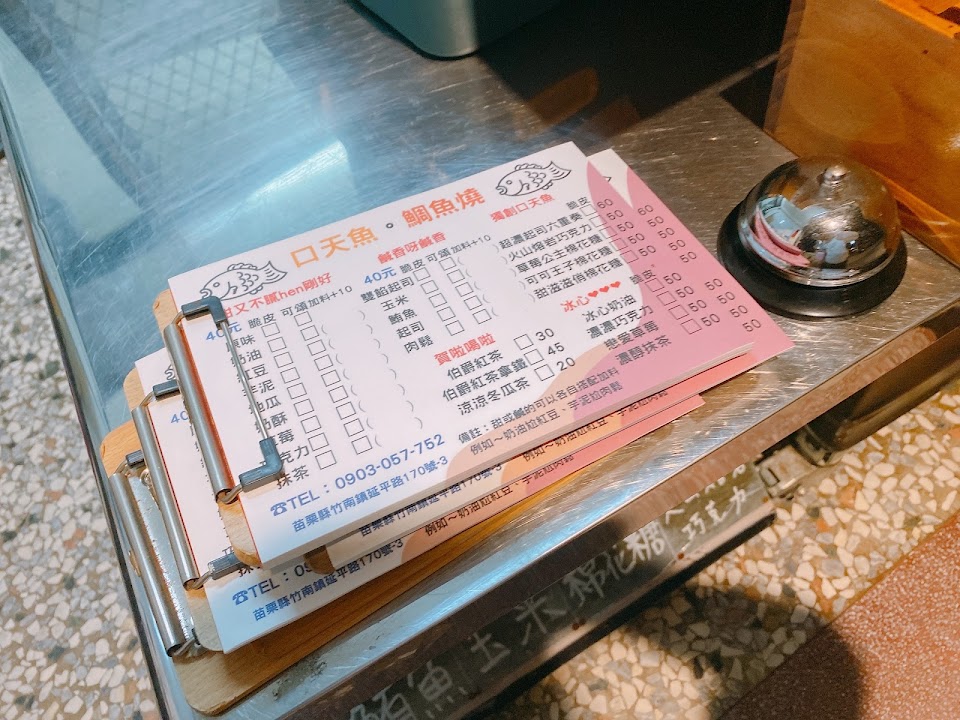 口天魚。鯛魚燒
又不膩hen剛好
40元 脆皮 可頌 加料+10
原味
奶油
紅豆
芋泥
地瓜
奶酥
草莓
巧克力
抹茶
鹹香呀鹹香
40元 脆皮 可頌 加料+10
雙餡起司
玉米
鮪魚
起司
肉鬆
賀啦喝啦
伯爵紅茶 30
伯爵紅茶拿鐵 45
涼涼冬瓜茶 20
獨創口天魚
脆皮
超濃起司六重奏 60
火山熔岩巧克力 60
草莓公主棉花糖 60
可可王子棉花糖 50
甜滋滋俏棉花糖 50
冰心❤❤❤ 脆皮
冰心奶油 50
濃濃巧克力 50
戀愛草莓 50
濃醇抹茶 50
備註:甜或鹹的可以各自搭配加料
例如~奶油拉紅豆、芋泥拉肉鬆
☎TEL:0903-057-752
苗栗縣竹南鎮延平路170號-3
例如~奶油拉紅豆、芋泥拉肉鬆
苗栗縣竹南鎮延平路170號-3
例如~奶油拉紅豆、芋泥拉肉鬆
☎TEL:09
苗栗縣竹南鎮延平路170號-3
鮪魚 玉米 棉花糖 巧克力